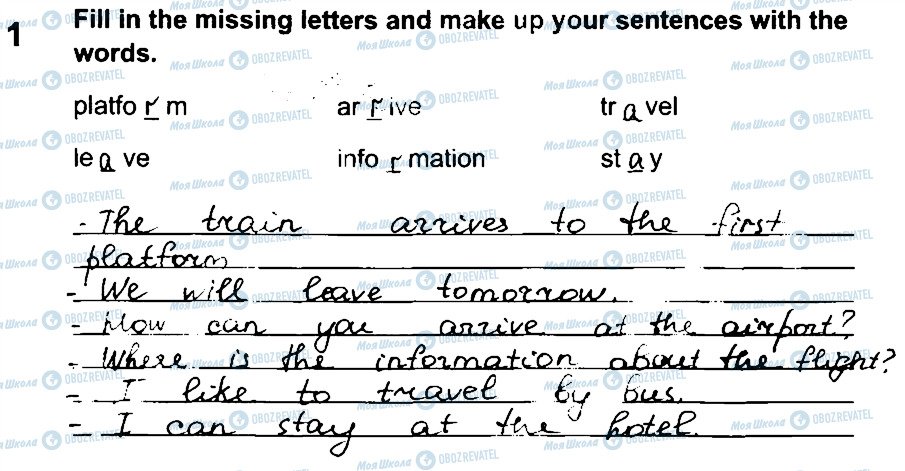 1 Fill in the missing letters and make up your sentences with the
words.
platfo r m ar r ive tr a vel
le a ve info r mation st a y
- The train arrives to the first
platform
- We will leave tomorrow.
- How can you arrive at the airport?
- Where is the information about the flight?
- I like to travel by bus.
- I can stay at the hotel.
Моя Школа OBOZREVATEL